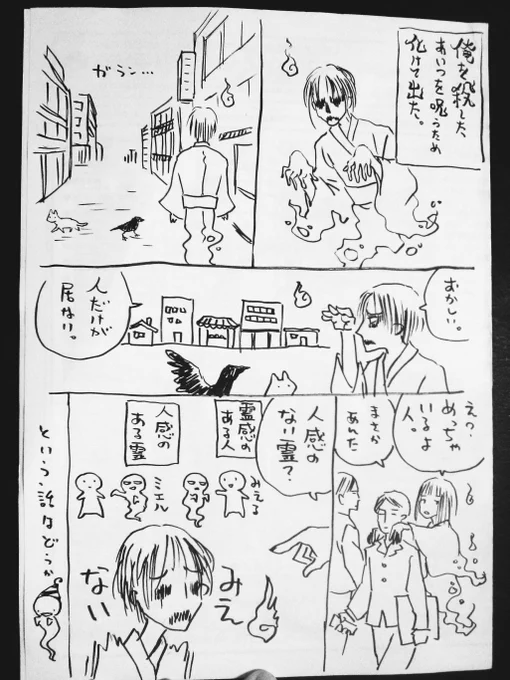 俺を殺した
あいつを呪うため
化けて出た。
ガラン…
おかしい。
人だけが
居ない。
えっ?
めっちゃ
いるよ
人。
まさか
あんた
人感の
ない霊?
霊感の
ある人
みえる
人感の
ある霊
ミエル
みえ
ない
という話はどうか